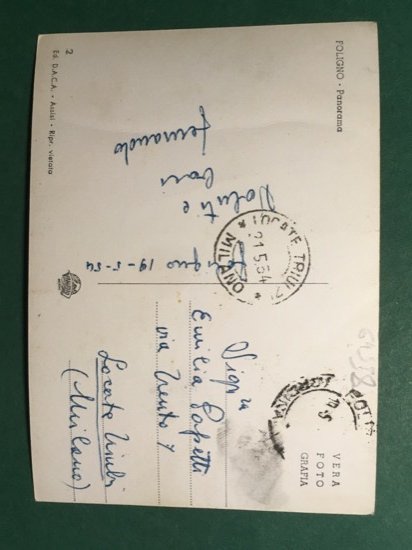 FOLIGNO - Panorama
Foligno 19-5-54
Saluti e
baci
Fernando
LOCATE TRIULZI
21.5.54
* MILANO *
VERA
FOTO
GRAFIA
Sig.ra
Emilia
via Trento 7
Locate Triulzi
(Milano)
2
Ed. D.A.C.A. - Assisi - Ripr. vietata